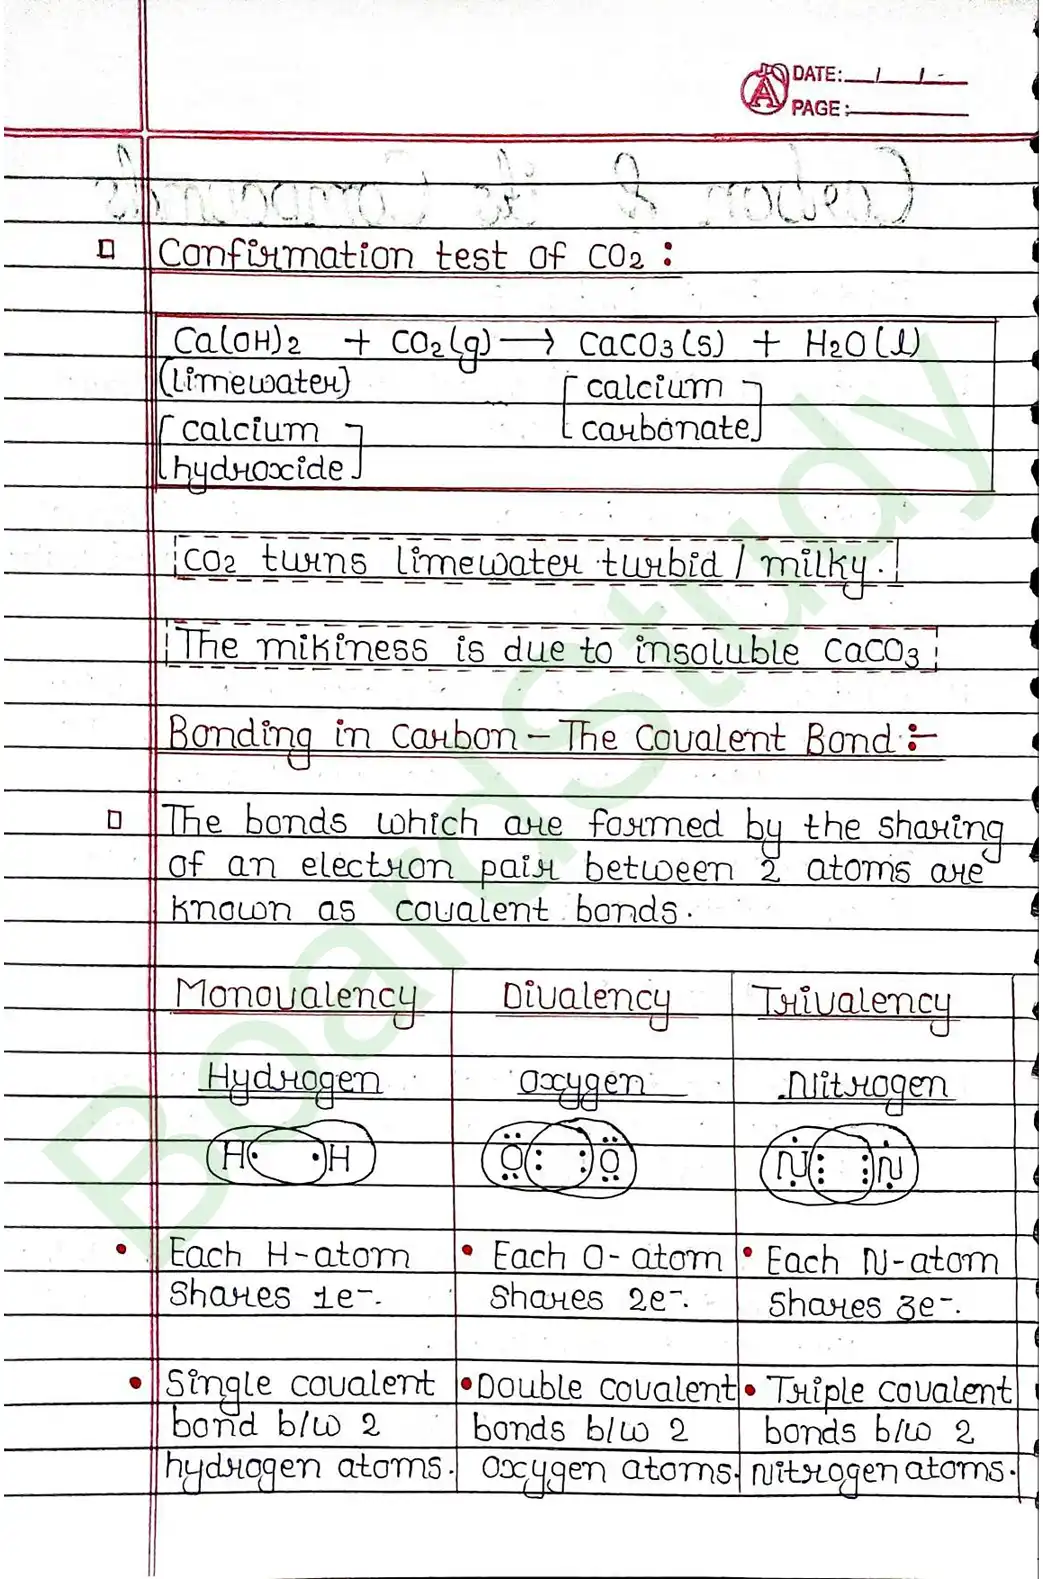 DATE: / / -
PAGE:
Carbon & its Compounds
Confirmation test of CO2 :
Ca(OH)2 + CO2(g) → CaCO3(s) + H2O(l)
(limewater) [calcium
[calcium carbonate]
hydroxide]
CO2 turns limewater turbid / milky.
The mikiness is due to insoluble CaCO3
Bonding in Carbon – The Covalent Bond :-
The bonds which are formed by the sharing
of an electron pair between 2 atoms are
known as covalent bonds.
Monovalency Divalency Trivalency
Hydrogen Oxygen Nitrogen
H H O O N N
• Each H-atom • Each O-atom • Each N-atom
Shares 1e-. Shares 2e-. Shares 3e-.
• Single covalent • Double covalent • Triple covalent
bond b/w 2 bonds b/w 2 bonds b/w 2
hydrogen atoms. oxygen atoms. Nitrogen atoms.
BoardStudy